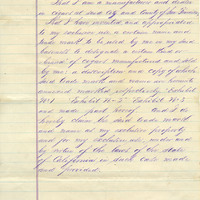 That I am a manufacturer and dealer
in cigars in said city and County of San Francisco
That I have invented and appropriated
to my exclusive use a certain name and
trade mark to be used by me in my said
business to designate a certain kind
of cigars manufactured and sold
by me: a description and copy of which
said trade mark and name are hereunto
annexed marked respectively Exhibit
No 1 Exhibit No 2 Exhibit No 3
and made part hereof. And I do
hereby claim the said trade mark
and name as my exclusive property
and for my exclusive use under and
by virtue of the laws of the State
of California in such case made
and provided.